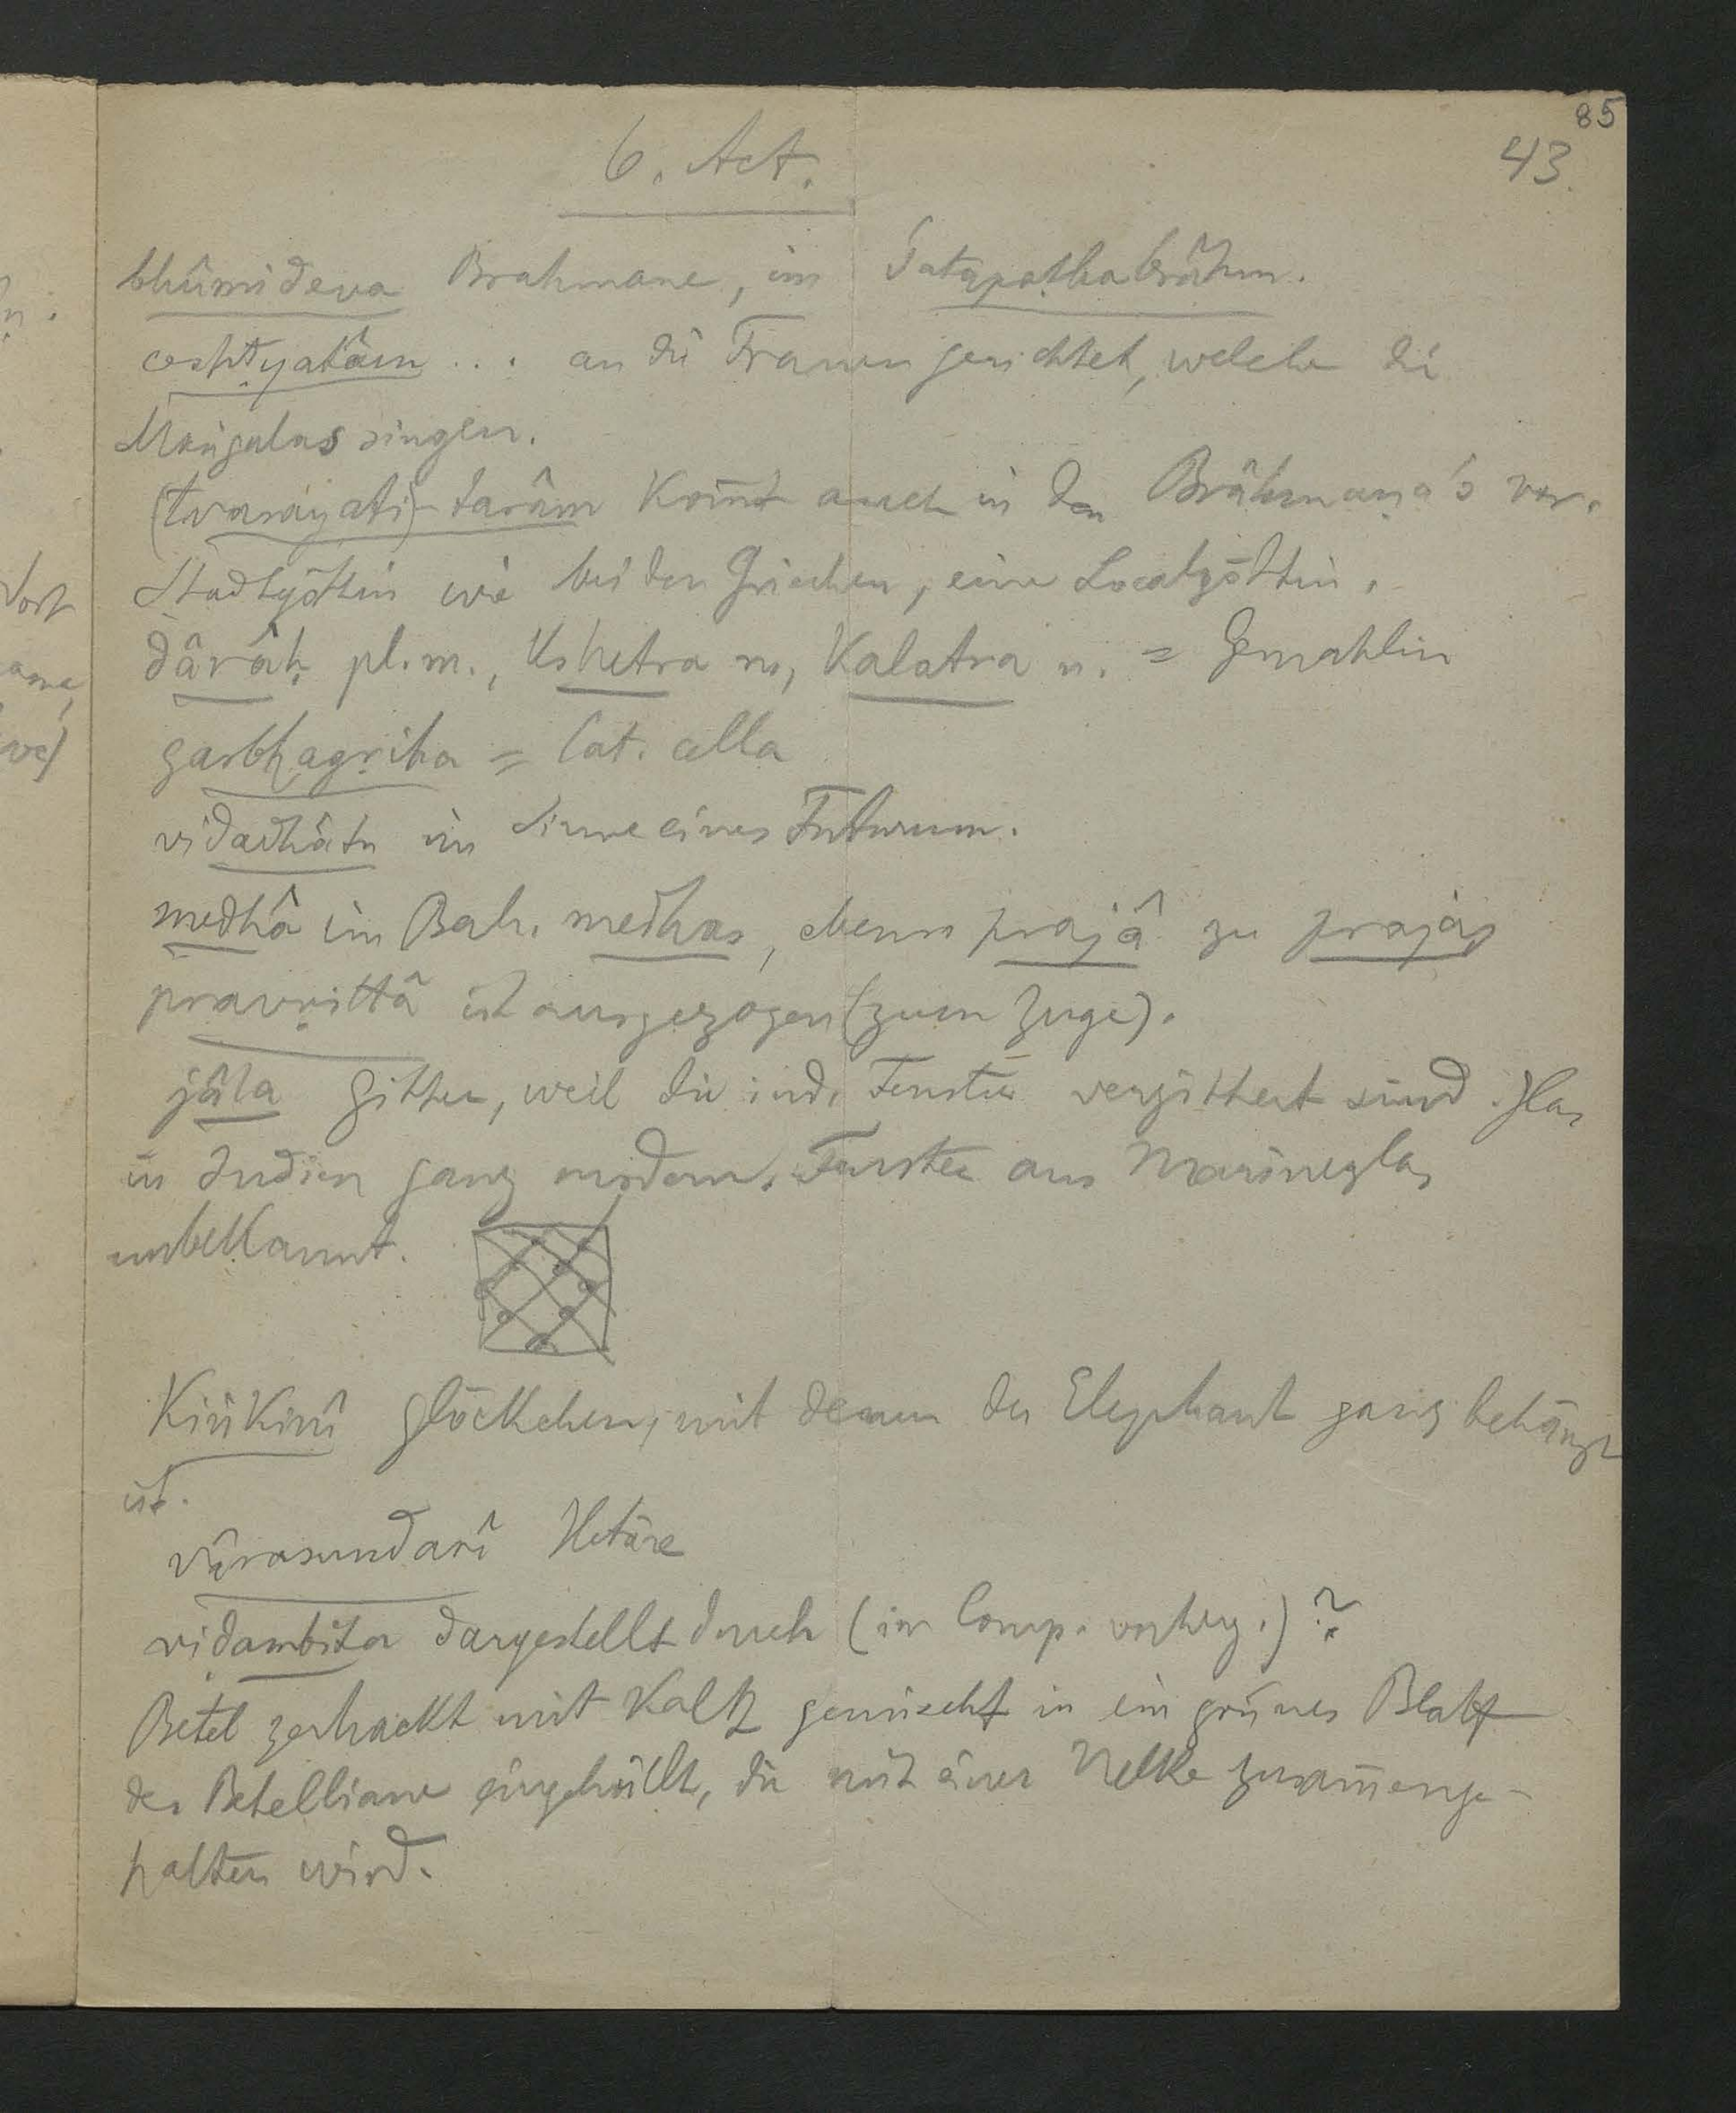 85
43.
6. Act.
bhûmideva Brahmane, im Śatapathabrâhm.
ceshṭyatâm ... an die Frauen gerichtet, welche die
Maṅgalas singen.
(tvarayati)-tarâm kom̅t auch in den Brâhmaṇa's vor.
Stadtgöttin wie bei den Griechen, eine Localgöttin.
dârâḥ pl. m., kshetra n., kalatra n. = Gemahlin
garbhagṛiha = lat. cella
vidadhâtu im Sinne eines Futurum.
medhâ im Bah. medhas, ebenso prajâ zu prajas
pravṛittâ ist ausgezogen (zum Zuge).
jâla Gitter, weil die ind. Fenster vergittert sind. Glas
in Indien ganz modern. Fenster aus Marineglas
unbekannt.
Kiṅkiṇî Glöckchen, mit denen der Elephant ganz behängt
ist.
vârasundarî Hetäre
viḍambita dargestellt durch (im Comp. vorherg.)?
Betel zerhackt mit Kalk gemischt in ein grünes Blatt
der Betelliane eingehüllt, die mit einer Nelke zusam̅enge-
halten wird.